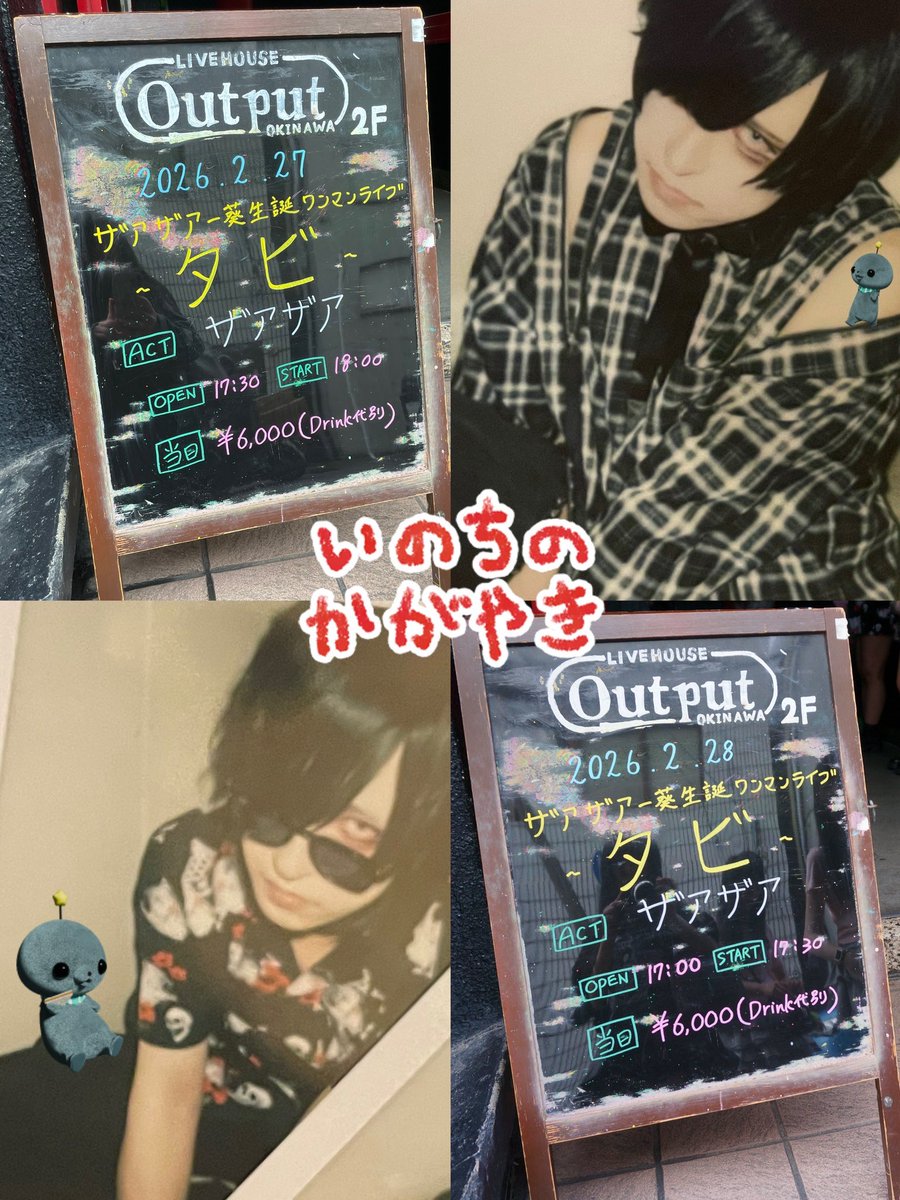 LIVEHOUSE
Output
OKINAWA
2F
2026.2.27
ザアザアー葵生誕ワンマンライブ
~タビ~
ACT ザアザア
OPEN 17:30 START 18:00
当日 ¥6,000(Drink代別)
いのちの
かがやき
LIVEHOUSE
Output
OKINAWA
2F
2026.2.28
ザアザアー葵生誕ワンマンライブ
~タビ~
ACT ザアザア
OPEN 17:00 START 17:30
当日 ¥6,000(Drink代別)